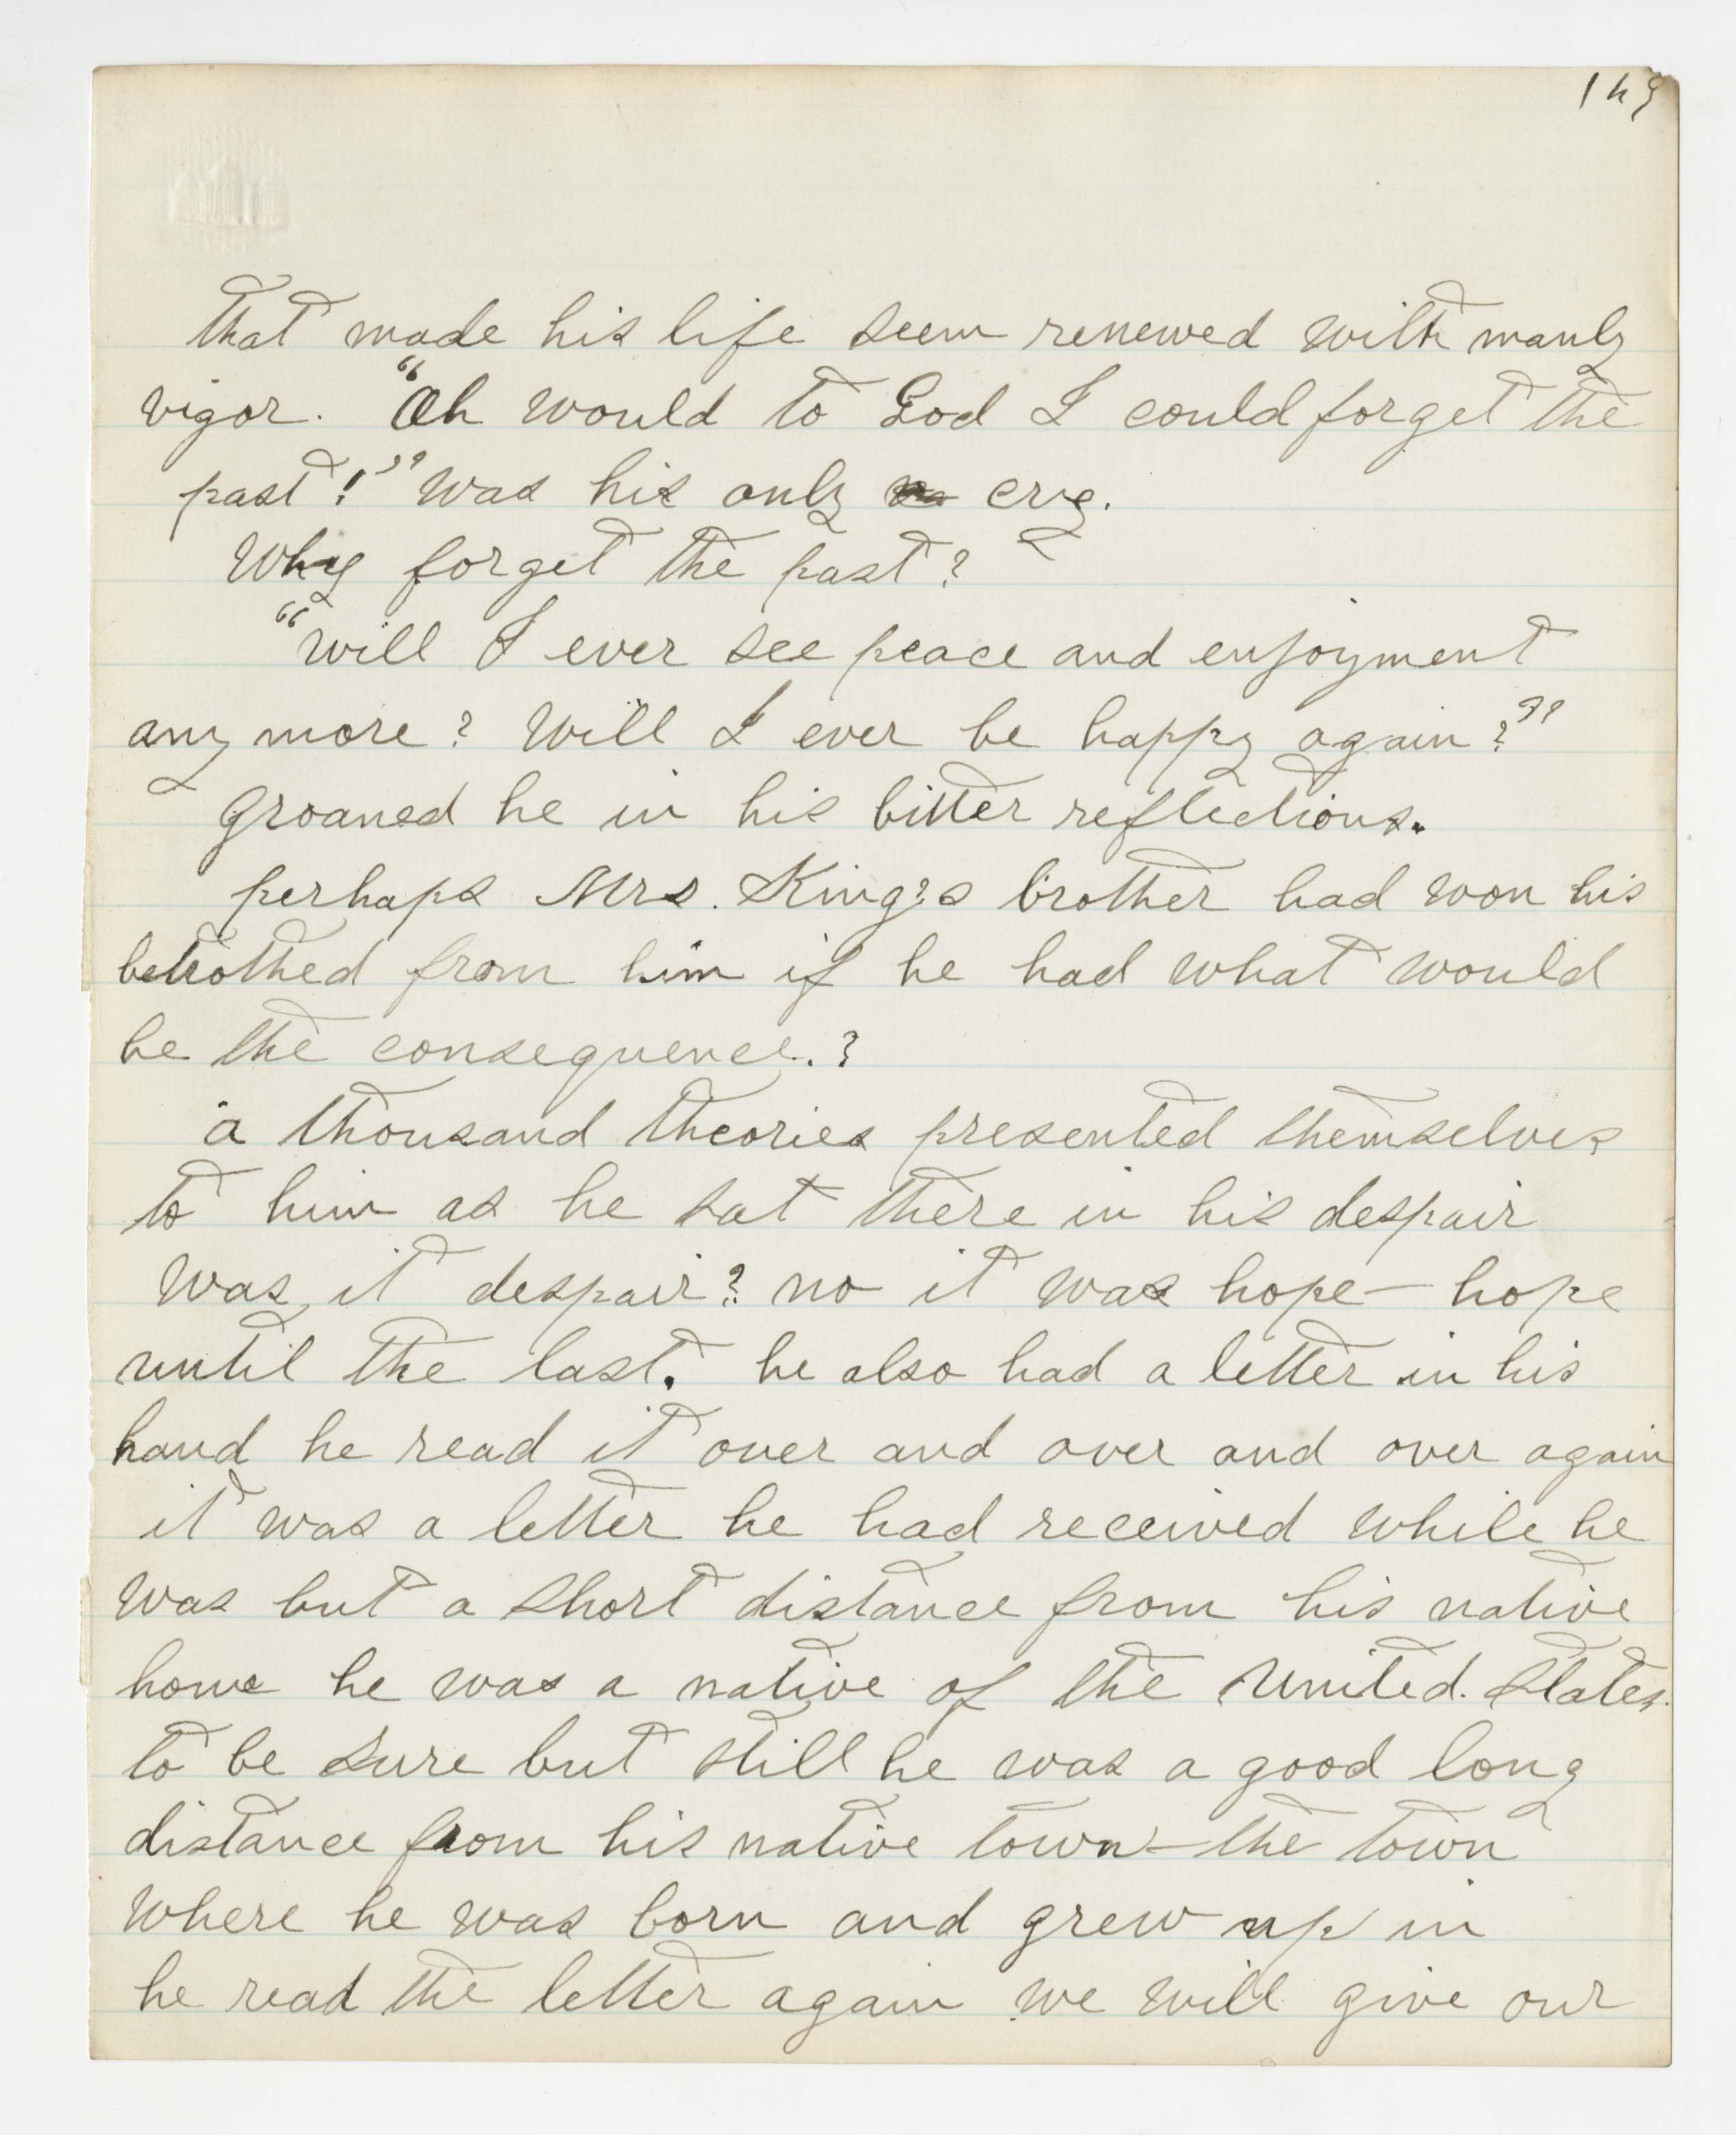 that made his life seem renewed with manly
vigor. "Oh would to God I could forget the
past!" was his only cry.
Why forget the past?
"Will I ever see peace and enjoyment
any more? Will I ever be happy again?"
groaned he in his bitter reflections.
perhaps Mrs. King's brother had won his
betrothed from him if he had what would
be the consequence.?
a thousand theories presented themselves
to him as he sat there in his despair
was it despair? no it was hope — hope
until the last. he also had a letter in his
hand he read it over and over and over again
it was a letter he had received while he
was but a short distance from his native
home he was a native of the United. States.
to be sure but still he was a good long
distance from his native town — the town
where he was born and grew up in
he read the letter again we will give our